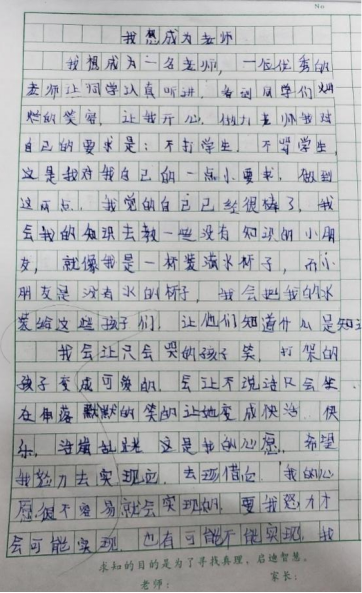 No
我想成为老师
我想成为一名老师，一位优秀的
老师让同学认真听讲，看到同学们灿
烂的笑容，让我开心，做为老师我对
自己的要求是：不打学生，不骂学生，
这是我对我自己的一点小要求，做到
这两点，我觉的自己已经很棒了，我
会我的知识去教一些没有知识的小朋
友，就像我是一杯装满水杯子，而小
朋友是没有水的杯子，我会把我的水
装给这些孩子们，让他们知道什么是知
我会让只会哭的孩子笑，打架的
孩子变成可爱的，会让不说话只会坐
在角落默默的哭的让她变成快活、快
乐，活蹦乱跳这是我的心愿，希望
我努力去实现，去 我的心
愿但不容易就会实现的，要我努力才
会可能实现，也有可能不能实现，我
求知的目的是为了寻找真理，启迪智慧。
老师： 家长：